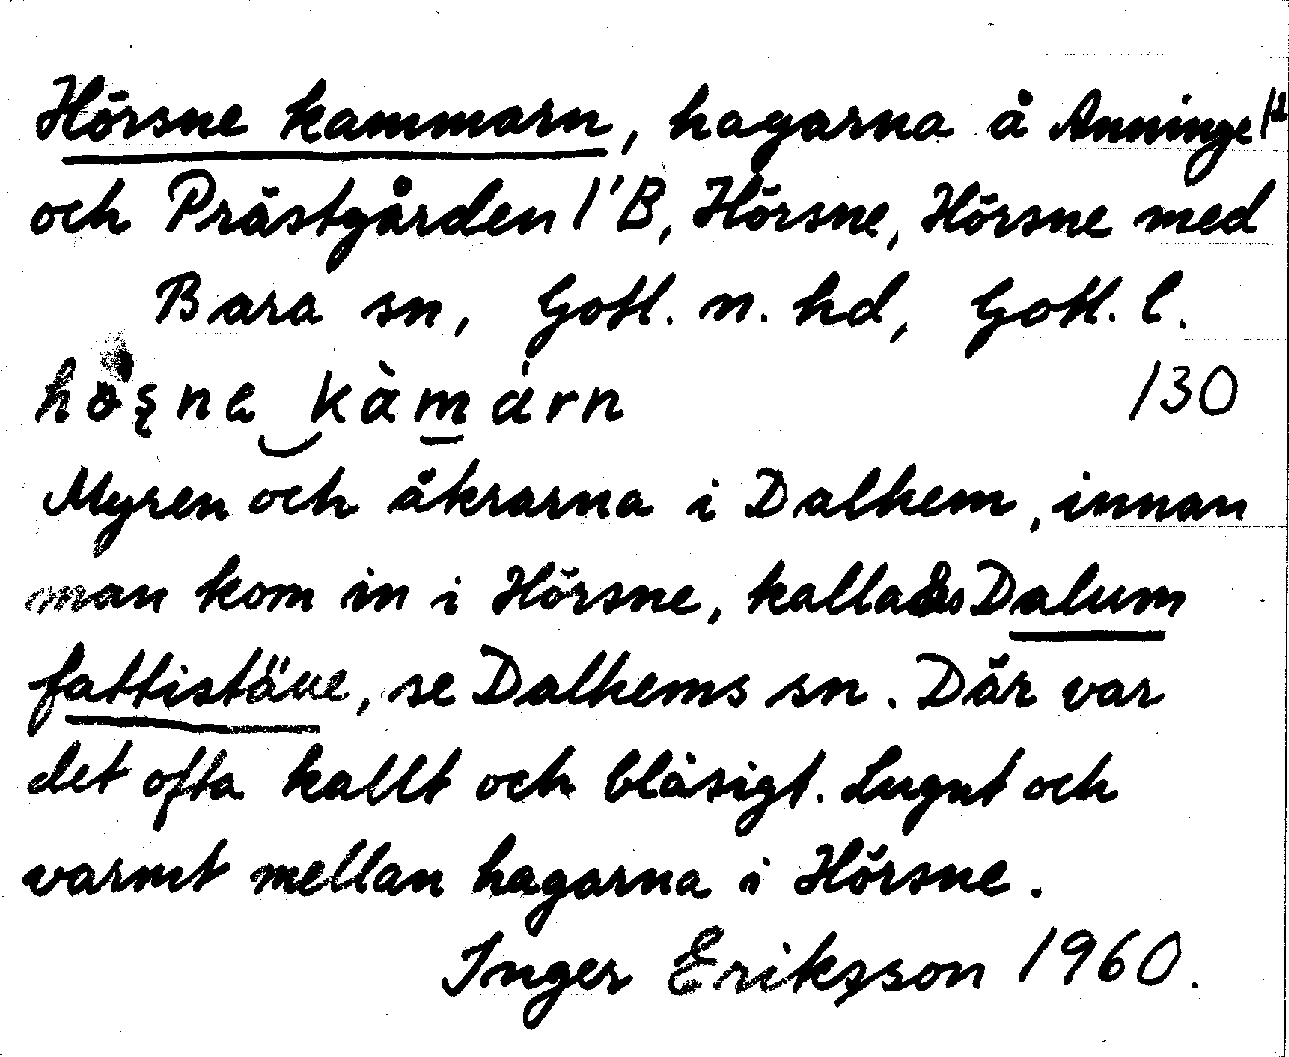 Hörsne kammarn, hagarna å Anninge 1²
och Prästgården 1'B, Hörsne, Hörsne med
Bara sn, Gotl. n. hd, Gotl. l.
kàmarn 130
Myren och åkrarna i Dalhem, innan
man kom in i Hörsne, kallades Dalum
fattistäue, se Dalhems sn. Där var
det ofta kallt och blåsigt. Lugnt och
varmt mellan hagarna i Hörsne.
Inger Eriksson 1960.